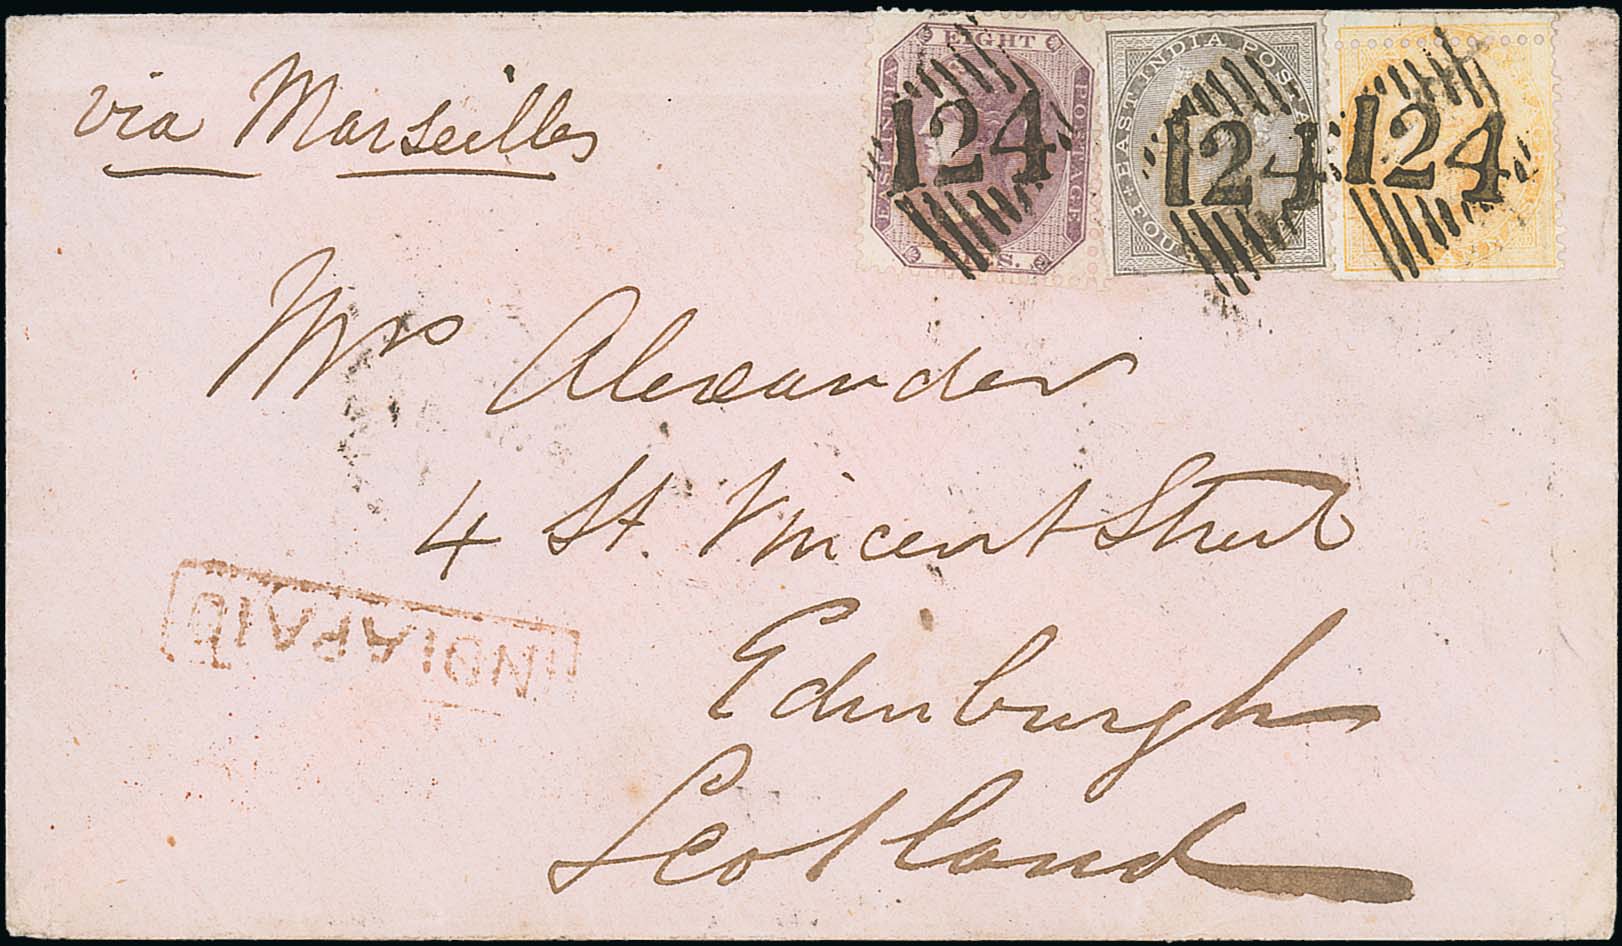 via Marseilles
EIGHT
EAST INDIA
POSTAGE
124
EAST INDIA POSTA
FOU
124
124
Mrs Alexander
4 St. Vincent Street
Edinburgh
Scotland
INDIA PAID